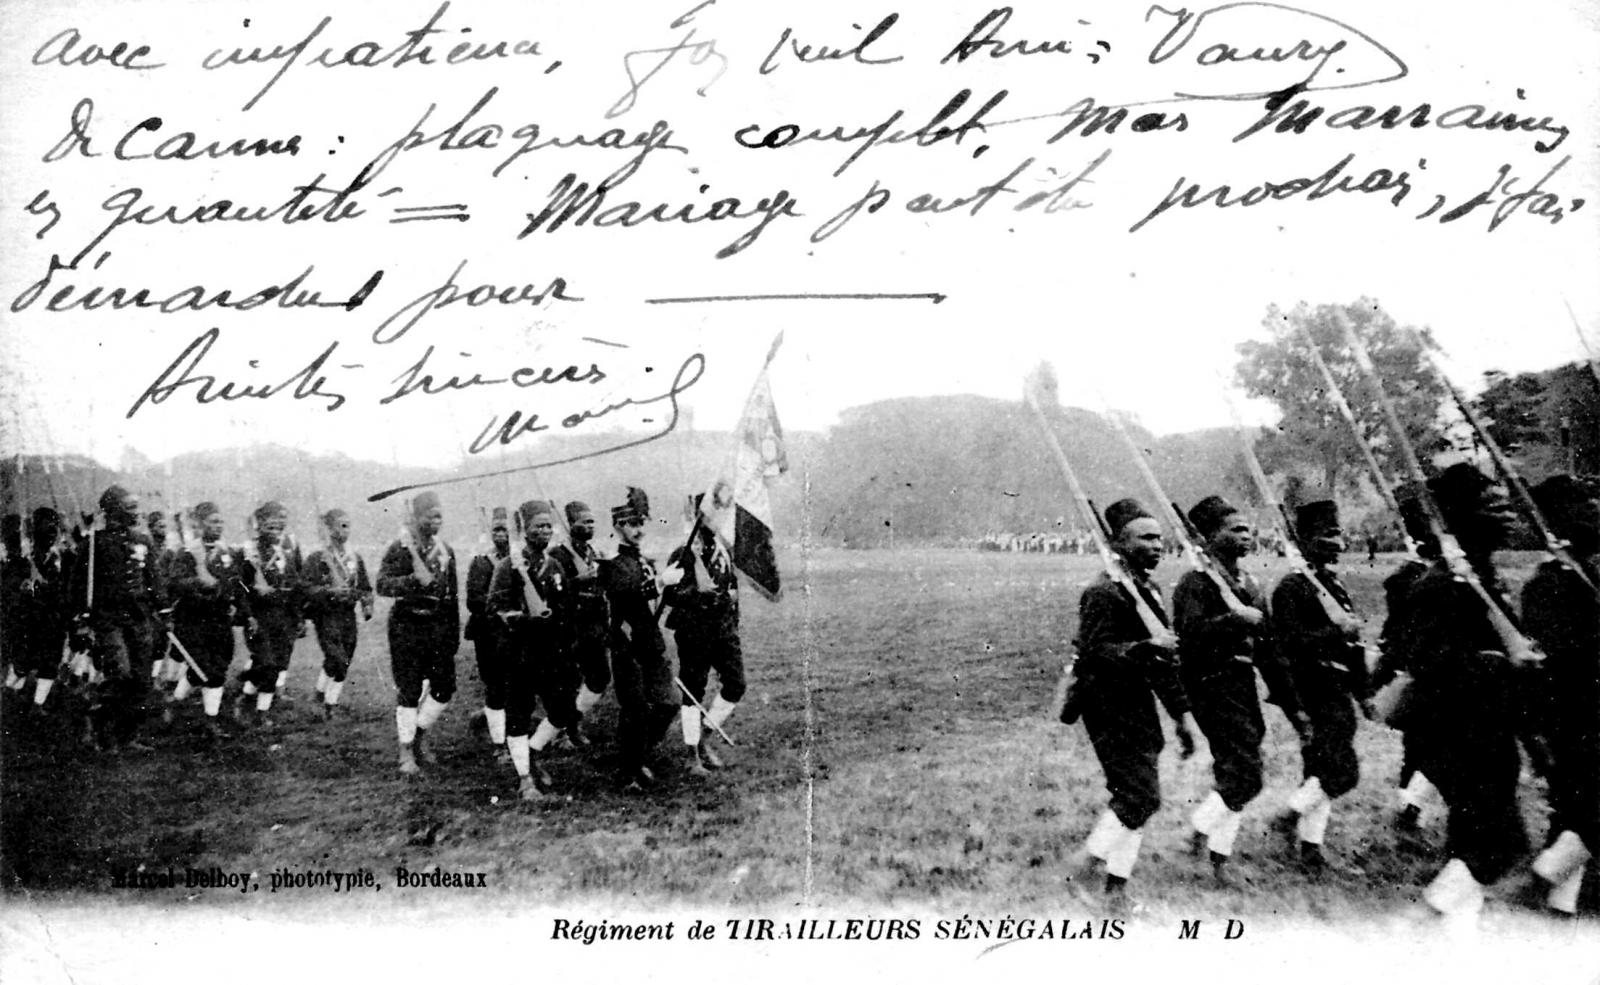 avec impatience, mon vieil Ami Vaury.
De Cannes : plaquage complet, Mes Marraines
en quantité = Mariage peut être prochai, j'fais
démarches pour
Amitiés sincères.
Marcel Delboy, phototypie, Bordeaux
Régiment de TIRAILLEURS SÉNÉGALAIS M D